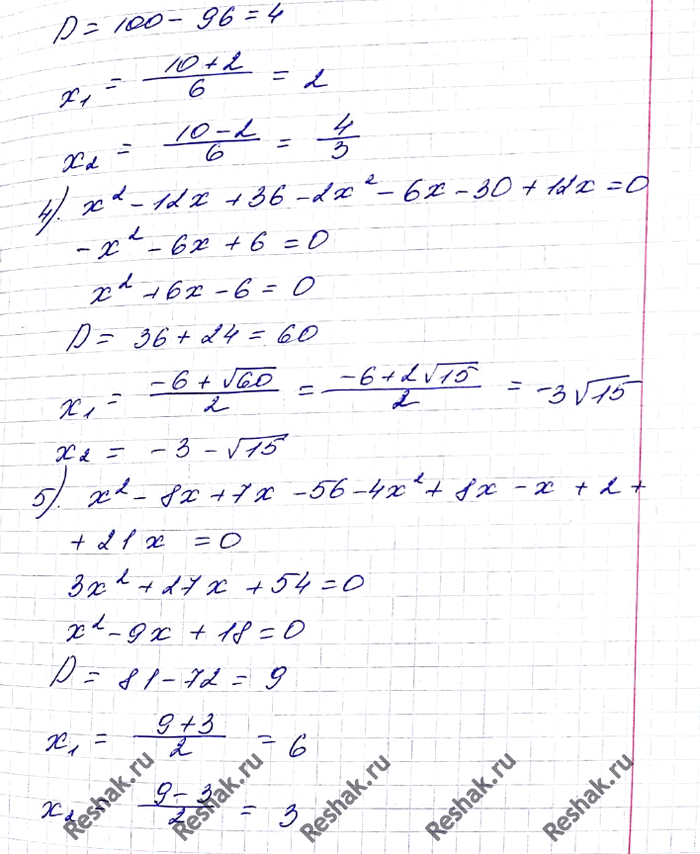 D = 100 - 96 = 4
x₁ = (10 + 2)/6 = 2
x₂ = (10 - 2)/6 = 4/3
4). x² - 12x + 36 - 2x² - 6x - 30 + 12x = 0
-x² - 6x + 6 = 0
x² + 6x - 6 = 0
D = 36 + 24 = 60
x₁ = (-6 + √60)/2 = (-6 + 2√15)/2 = -3√15
x₂ = -3 - √15
5). x² - 8x + 7x - 56 - 4x² + 8x - x + 2 +
+ 21x = 0
3x² + 27x + 54 = 0
x² - 9x + 18 = 0
D = 81 - 72 = 9
x₁ = (9 + 3)/2 = 6
x₂ = (9 - 3)/2 = 3
Reshak.ru Reshak.ru Reshak.ru Reshak.ru Reshak.ru